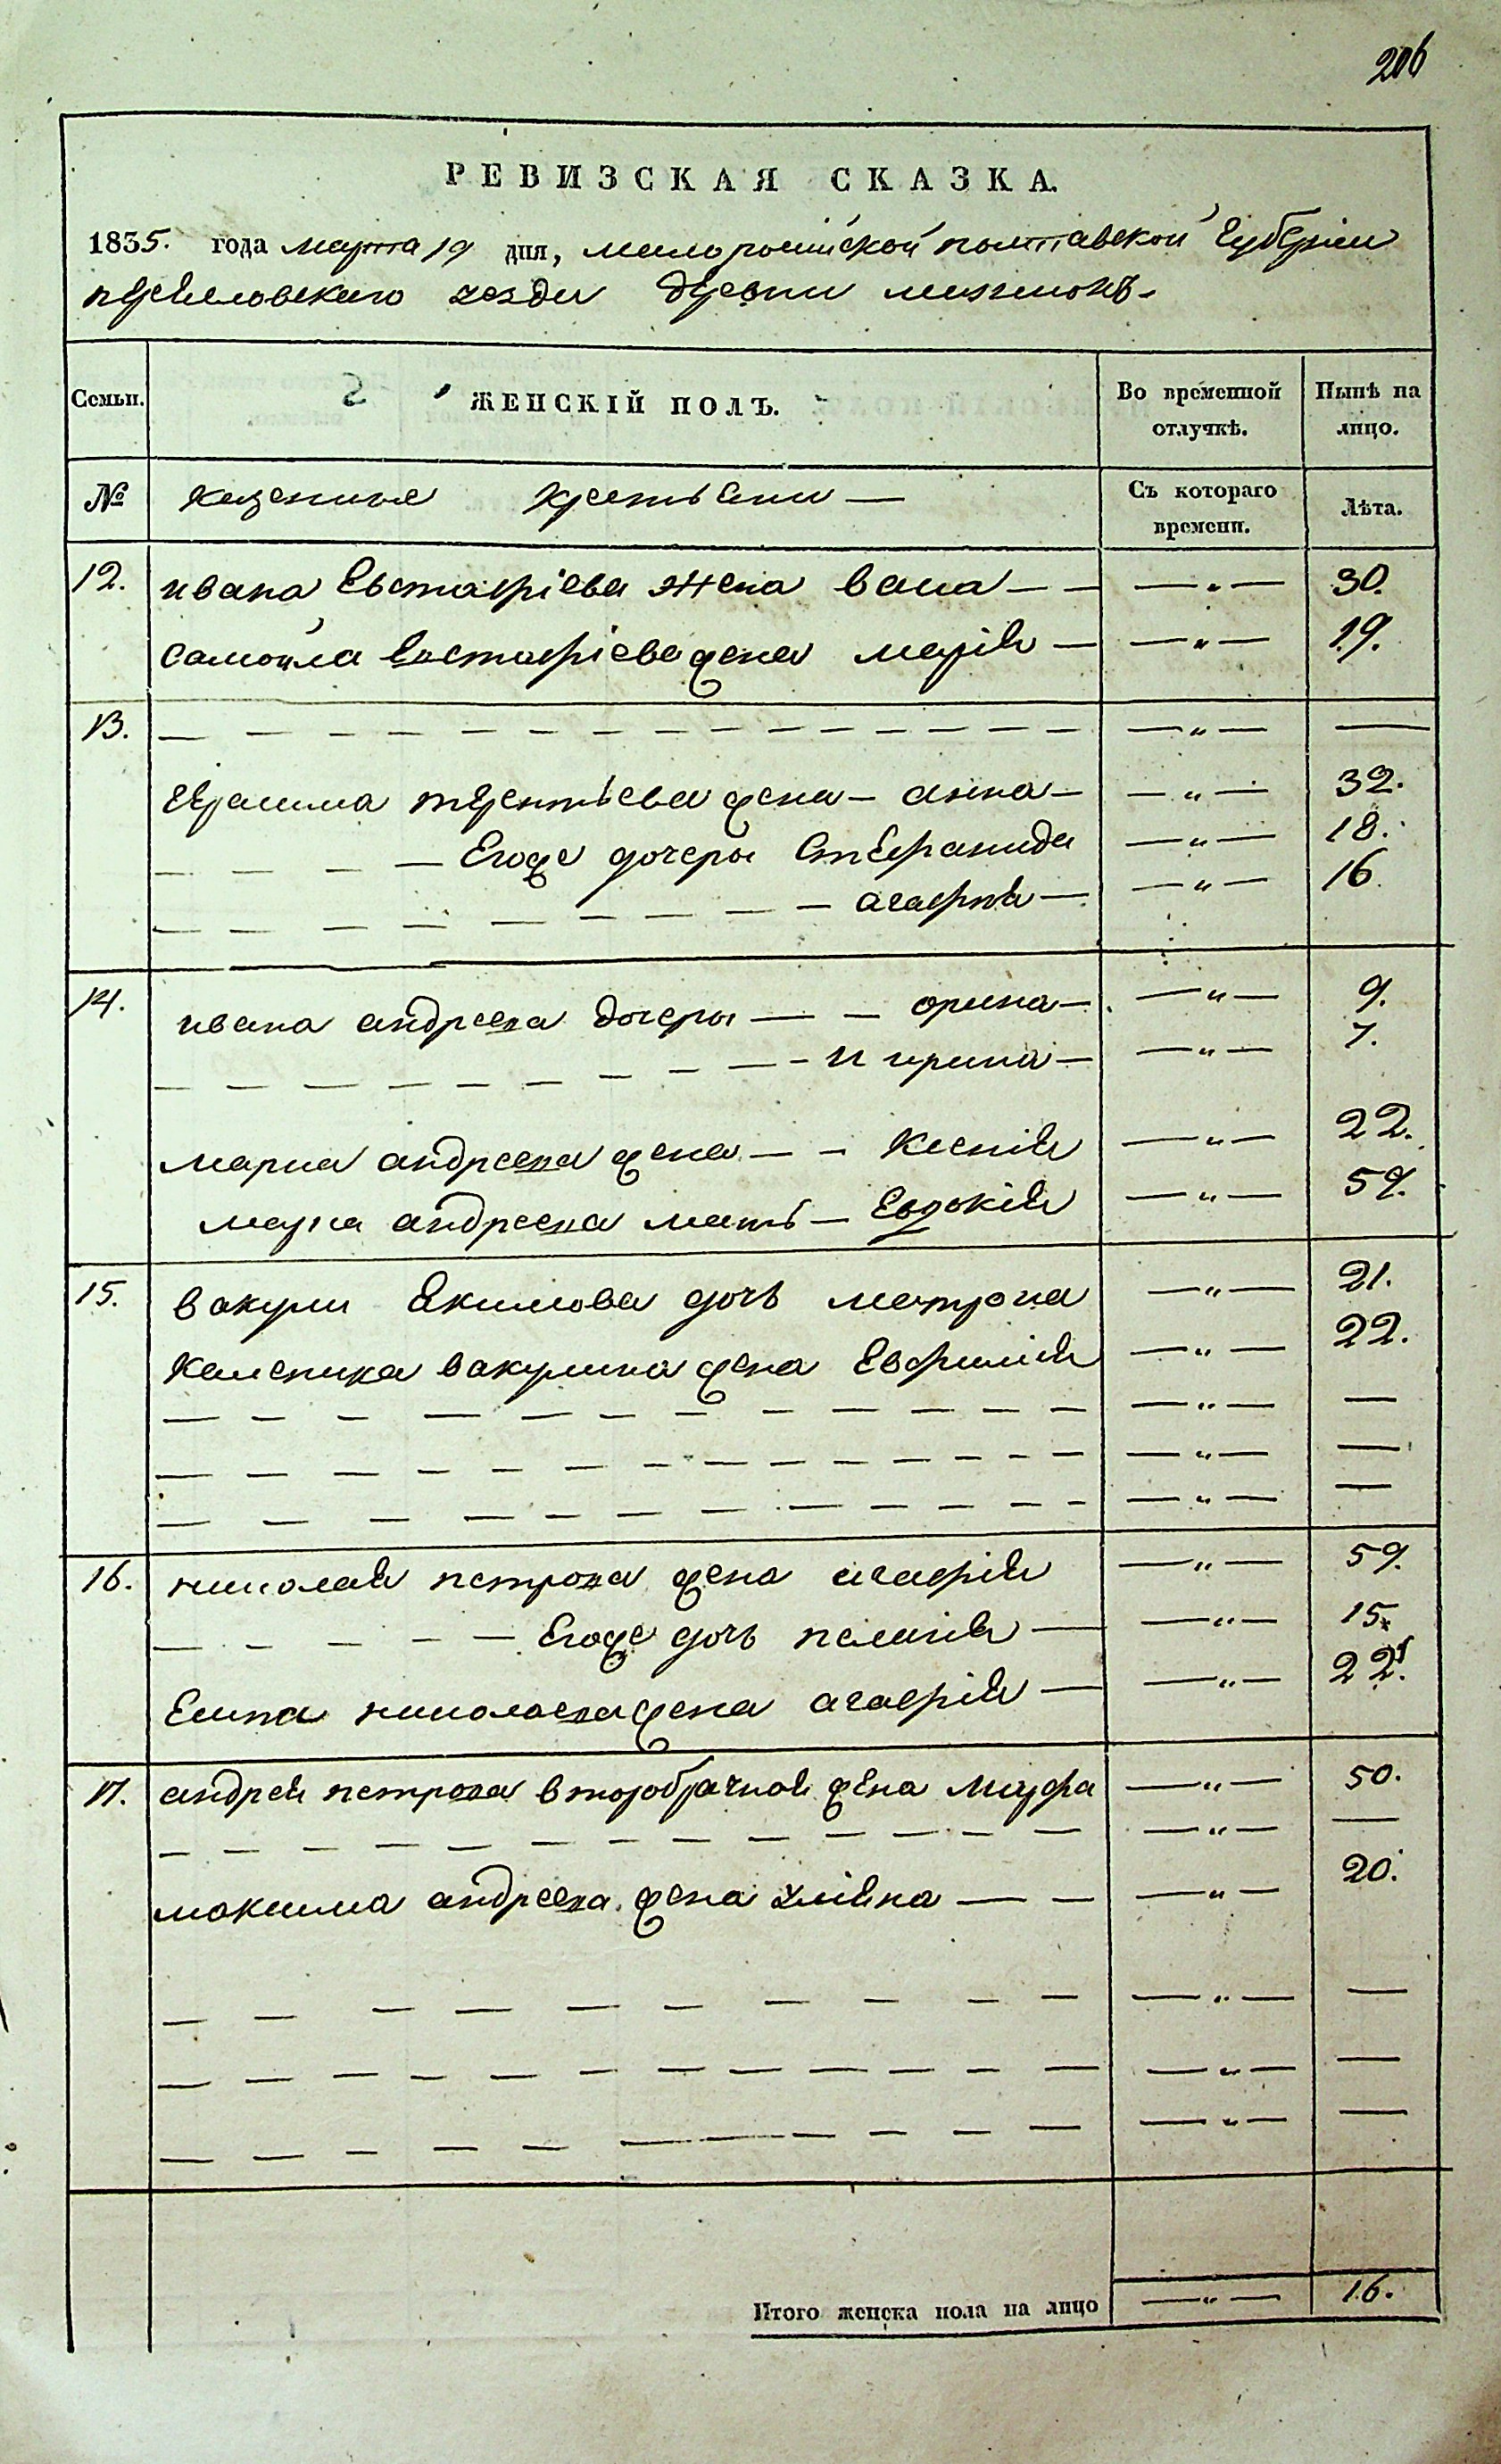 206
РЕВИЗСКАЯ СКАЗКА.
1835. года марта 19 дня, малороссійской полтавской губерніи
переясловскаго уезда деревни
Семьи. ЖЕНСКІЙ ПОЛЪ. Во временной отлучкѣ. Нынѣ на лицо.
№ казенные крестьяни — Съ котораго времени. Лѣта.
12. ивана Евстафіева жена васса — — — „ — 30.
самоила Евстафіева жена марія — — „ — 19.
13. — — — — — — — — — „ — —
герасима терентьева жена — анна — — „ — 32.
— — — — Егоже дочеры Стефанида — „ — 18.
— — — — — — — — агафия — — „ — 16.
14. ивана андреева дочеры — — орина — — „ — 9.
— — — — — — — — и ирина — — „ — 7.
марка андреева жена — — Ксенія — „ — 22.
марка андреева мать — Евдокія — „ — 59.
15. вакули Екимова дочь матрона — „ — 21.
вакулина жена Евфимія — „ — 22.
— — — — — — — — — „ — —
— — — — — — — — — „ — —
— — — — — — — — — „ — —
16. николая петрова жена агафія — „ — 59.
— — — — — Егоже дочь пелагія — — „ — 15.
николаева жена агафія — — „ — 22.
17. андрея петрова второбрачная жена марфа — „ — 50.
— — — — — — — — — „ — —
максима андреева жена уліяна — — — „ — 20.
— — — — — — — — — „ — —
— — — — — — — — — „ — —
— — — — — — — — — „ — —
Итого женска пола на лицо — „ — 16.